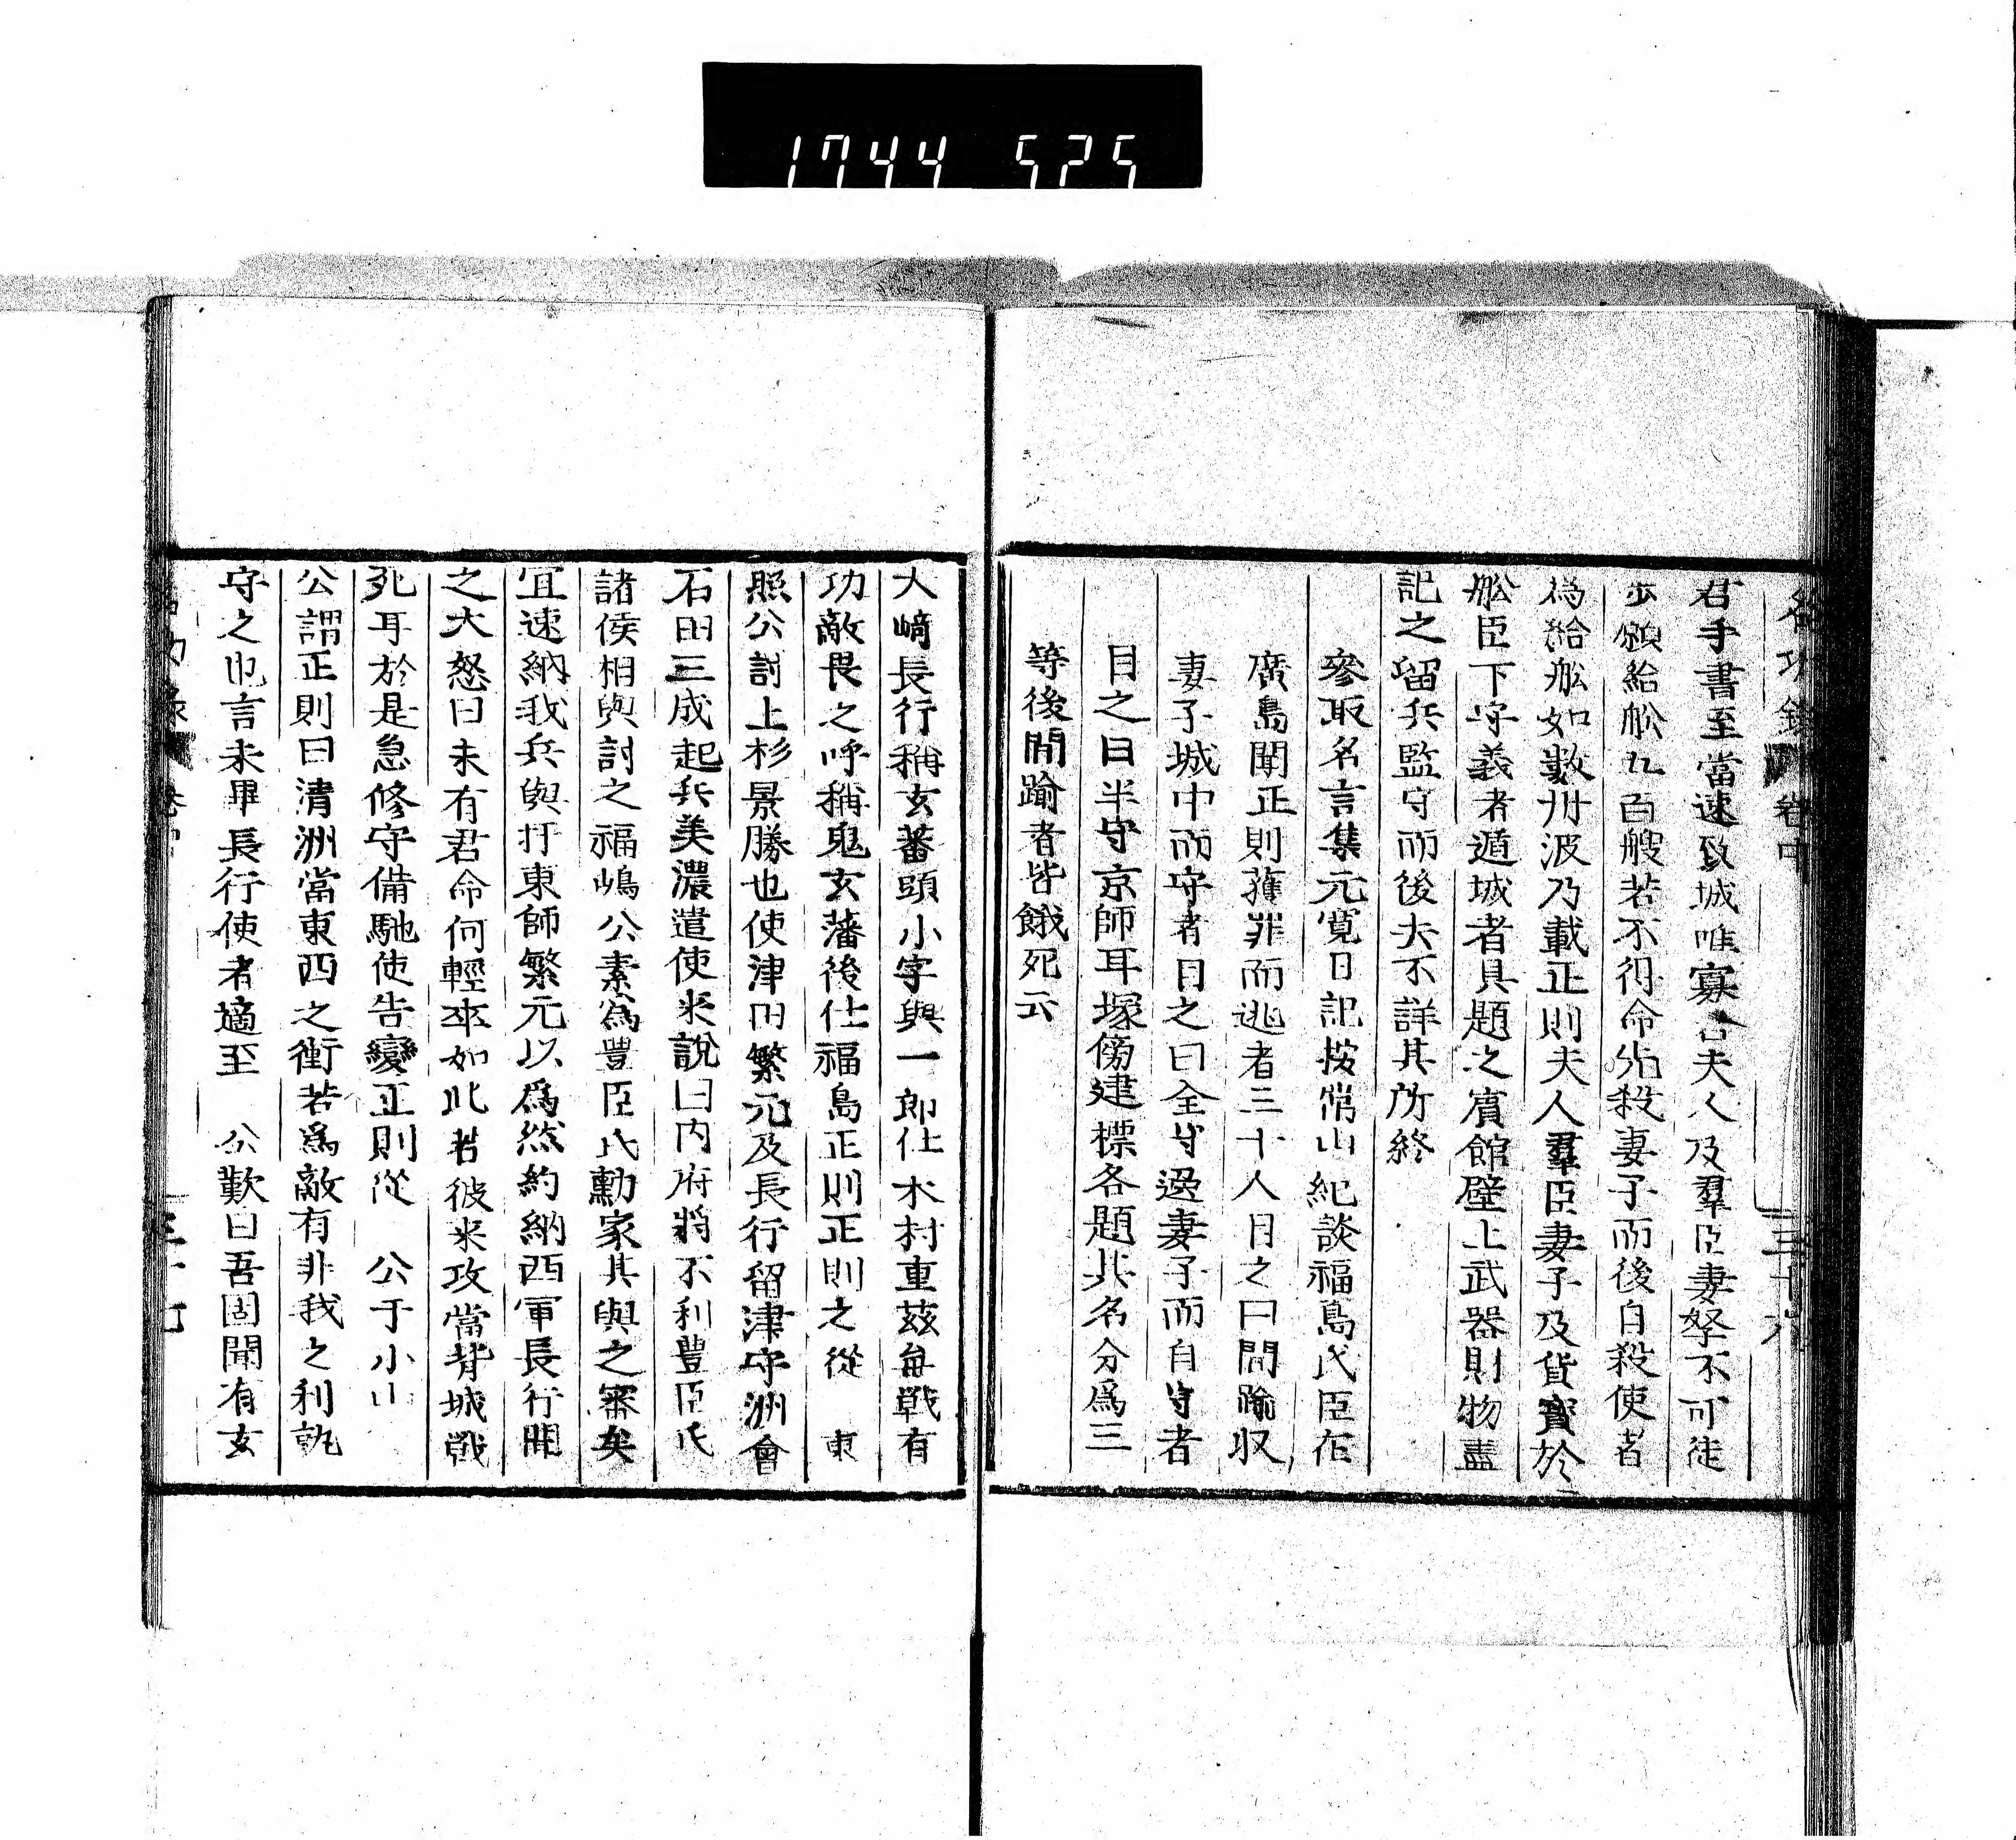 1744 525
名功録 卷中 三十六
君手書至當速致城唯寡君夫人及羣臣妻孥不可徒
步願給舩九百艘若不得命殺妻子而後自殺使者
為給舩如數舟泼乃載正則夫人羣臣妻子及貨寳於
舩臣下守義者遁城者具題之賓館壁上武器財物盡
記之留兵監守而後去不詳其所終
參取名言集元寛日記按常山紀談福島氏臣在
廣島聞正則獲罪而逃者三十人目之曰間踰収
妻子城中而守者目之曰全守送妻子而自守者
目之曰半守京師耳塚傍建標各題其名分為三
等後間踰者皆餓死云
大﨑長行稱玄蕃頭小字與一郎仕木村重茲每戰有
功敵畏之呼稱鬼玄藩後仕福島正則正則之從 東
照公討上杉景勝也使津田繁元及長行留津守洲會
石田三成起兵美濃遣使来說曰内府將不利豐臣氏
諸侯相與討之福嶋公素為豐臣氏勳家其與之審矣
宜速納我兵與扞東師繁元以爲然約納西軍長行聞
之大怒曰未有君命何輕卒如此若彼来攻當背城戰
死耳於是急修守備馳使告變正則從 公于小山
公謂正則曰清洲當東西之衝若爲敵有非我之利孰
守之也言未畢長行使者適至 公歎曰吾固聞有玄